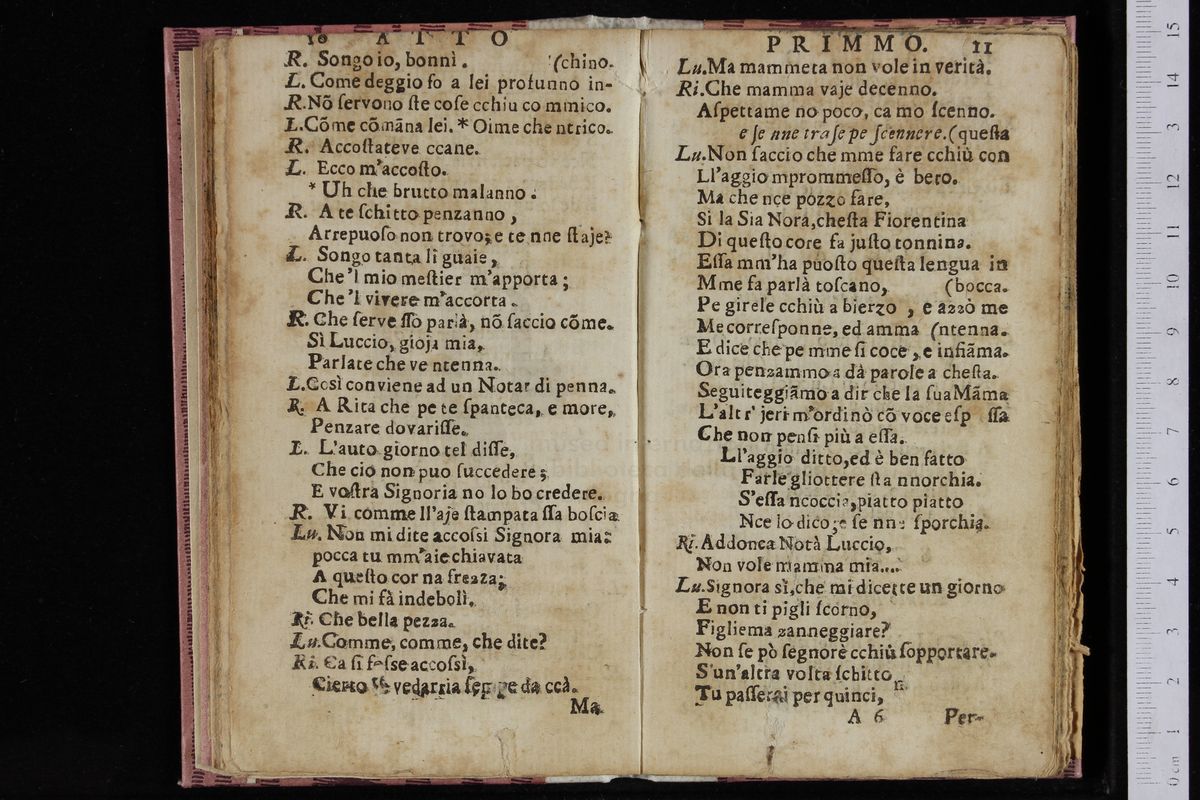 10 ATTO
R. Songo io, bonnì. (chino.
L. Come deggio fo a lei profunno in-
R.Nõ ſervono ſte coſe cchiu co mmico.
L.Cõme cõmãna lei. * Oime che ntrico.
R. Accoſtateve ccane.
L. Ecco m'accoſto.
* Uh che brutto malanno.
R. A te ſchitto penzanno,
Arrepuoſo non trovo; e te nne ſtaje?
L. Songo tanta li guaie,
Che'l mio meſtier m'apporta;
Che'l vivere m'accorta.
R. Che ſerve ſſo parlà, nõ ſaccio cõme.
Sì Luccio, gioja mia,
Parlate che ve ntenna.
L.Così conviene ad un Notar di penna.
R. A Rita che pe te ſpanteca, e more,
Penzare dovariſſe.
L. L'auto giorno tel diſſe,
Che ciò non puo ſuccedere;
E voſtra Signoria no lo bo credere.
R. Vi comme ll'aje ſtampata ſſa boſcia
Lu. Non mi dite accoſsi Signora mia:
pocca tu mm'aie chiavata
A queſto cor na frezza;
Che mi fà indebolì.
Ri. Che bella pezza.
Lu.Comme, comme, che dite?
Ri. Ca ſi foſse accoſsì,
Cierto te vedarria ſempe da ccà.
Ma
PRIMMO. 11
Lu.Ma mammeta non vole in verità.
Ri.Che mamma vaje decenno.
Aſpettame no poco, ca mo ſcenno.
e ſe nne traſe pe ſcennere. (queſta
Lu.Non ſaccio che mme fare cchiù con
Ll'aggio mprommeſſo, è bero.
Ma che nce pozzo fare,
Si la Sia Nora, cheſta Fiorentina
Di queſto core fa juſto tonnina.
Eſſa mm'ha puoſto queſta lengua in
Mme fa parlà toſcano, (bocca.
Pe girele cchiù a bierzo, e azzò me
Me correſponne, ed amma (ntenna.
E dice che pe mme ſi coce, e infiãma.
Ora penzammo a dà parole a cheſta.
Seguiteggiãmo a dir che la ſua Mãma
L'altr' jeri m'ordinò cõ voce eſp ſſa
Che non penſi più a eſſa.
Ll'aggio ditto, ed è ben fatto
Farle gliottere ſta nnorchia.
S'eſſa ncoccia, piatto piatto
Nce lo dico, e ſe nne ſporchia.
Ri.Addonca Notà Luccio,
Non vole mamma mia....
Lu.Signora sì, che mi dicette un giorno
E non ti pigli ſcorno,
Figliema zanneggiare?
Non ſe pò ſegnorè cchiù ſopportare.
S'un'altra volta ſchitto
Tu paſſerai per quinci,
A 6 Per-